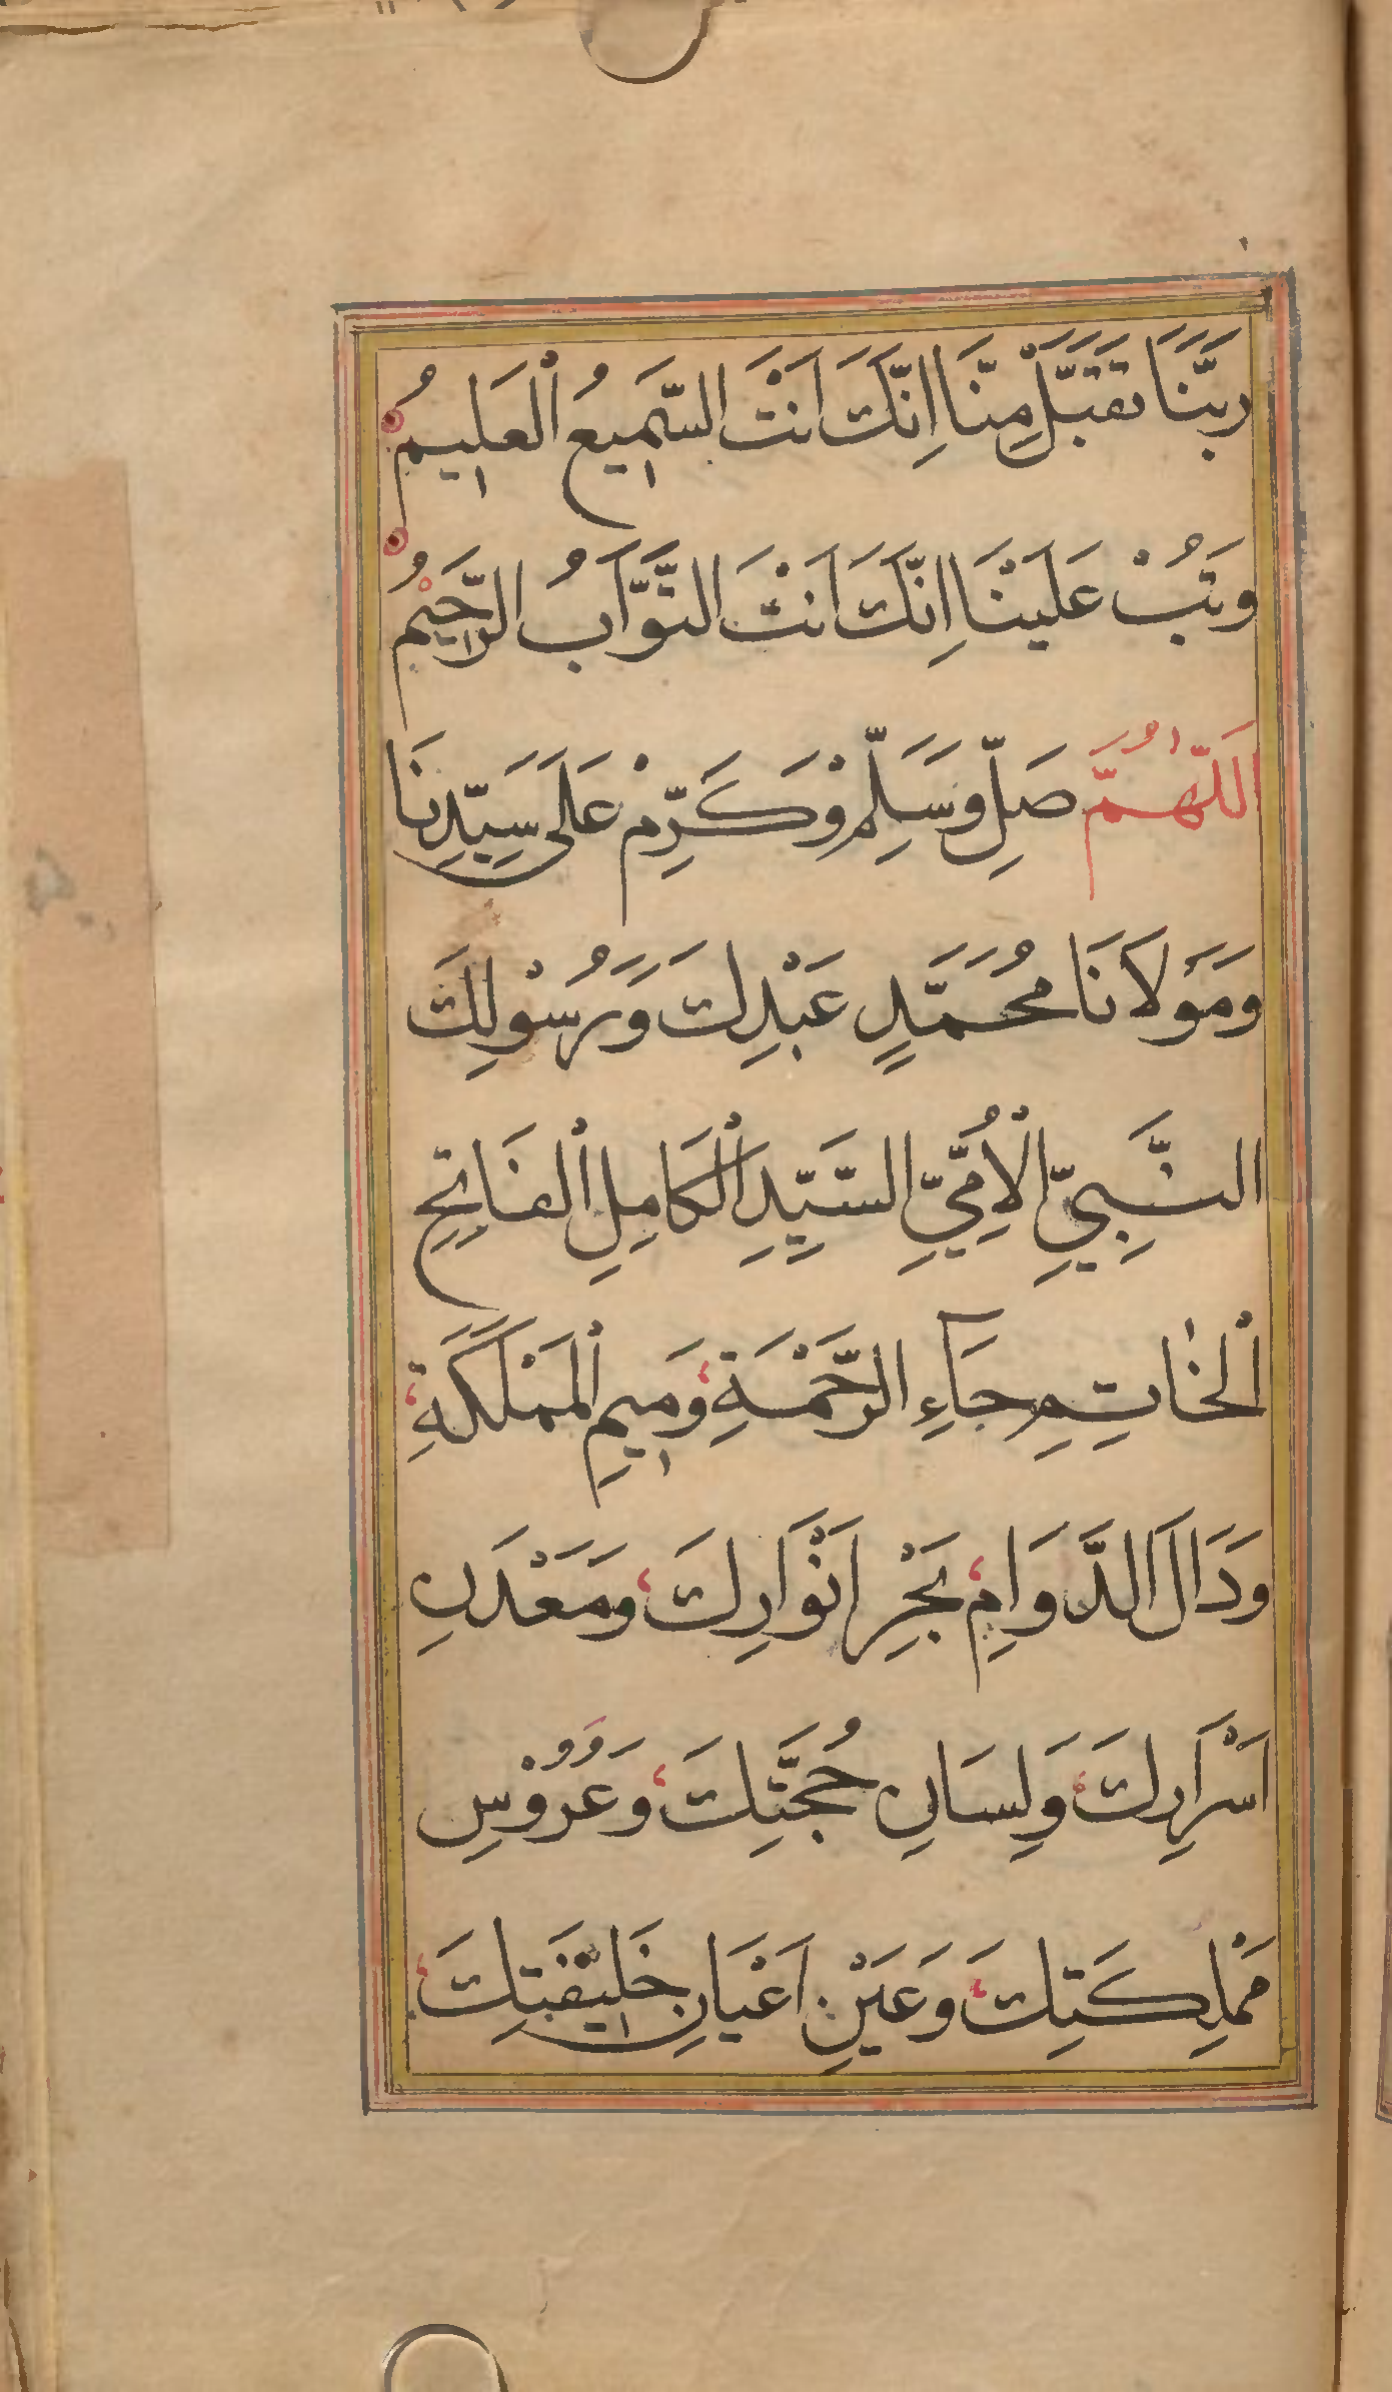 رَبَّنَا تَقَبَّلْ مِنَّا اِنَّكَ اَنْتَ السَّمِيعُ الْعَلِيمُ
وَتُبْ عَلَيْنَا اِنَّكَ اَنْتَ التَّوَّابُ الرَّحِيْمُ
اَللّٰهُمَّ صَلِّ وَسَلِّمْ وَكَرِّمْ عَلَى سَيِّدِنَا
وَمَوْلَانَا مُحَمَّدٍ عَبْدِكَ وَرَسُوْلِكَ
النَّبِيِّ الْاُمِّيِّ السَّيِّدِ الْكَامِلِ الْفَاتِحِ
الْخَاتِمِ حَاءِ الرَّحْمَةِ وَمِيمِ الْمَمْلَكَةِ
وَدَالَ الدَّوَامِ بَحْرِ اَنْوَارِكَ وَمَعْدَنِ
اَسْرَارِكَ وَلِسَانِ حُجَّتِكَ وَعَرُوْسِ
مَمْلِكَتِكَ وَعَيْنِ اَعْيَانِ خَلِيْقَتِكَ